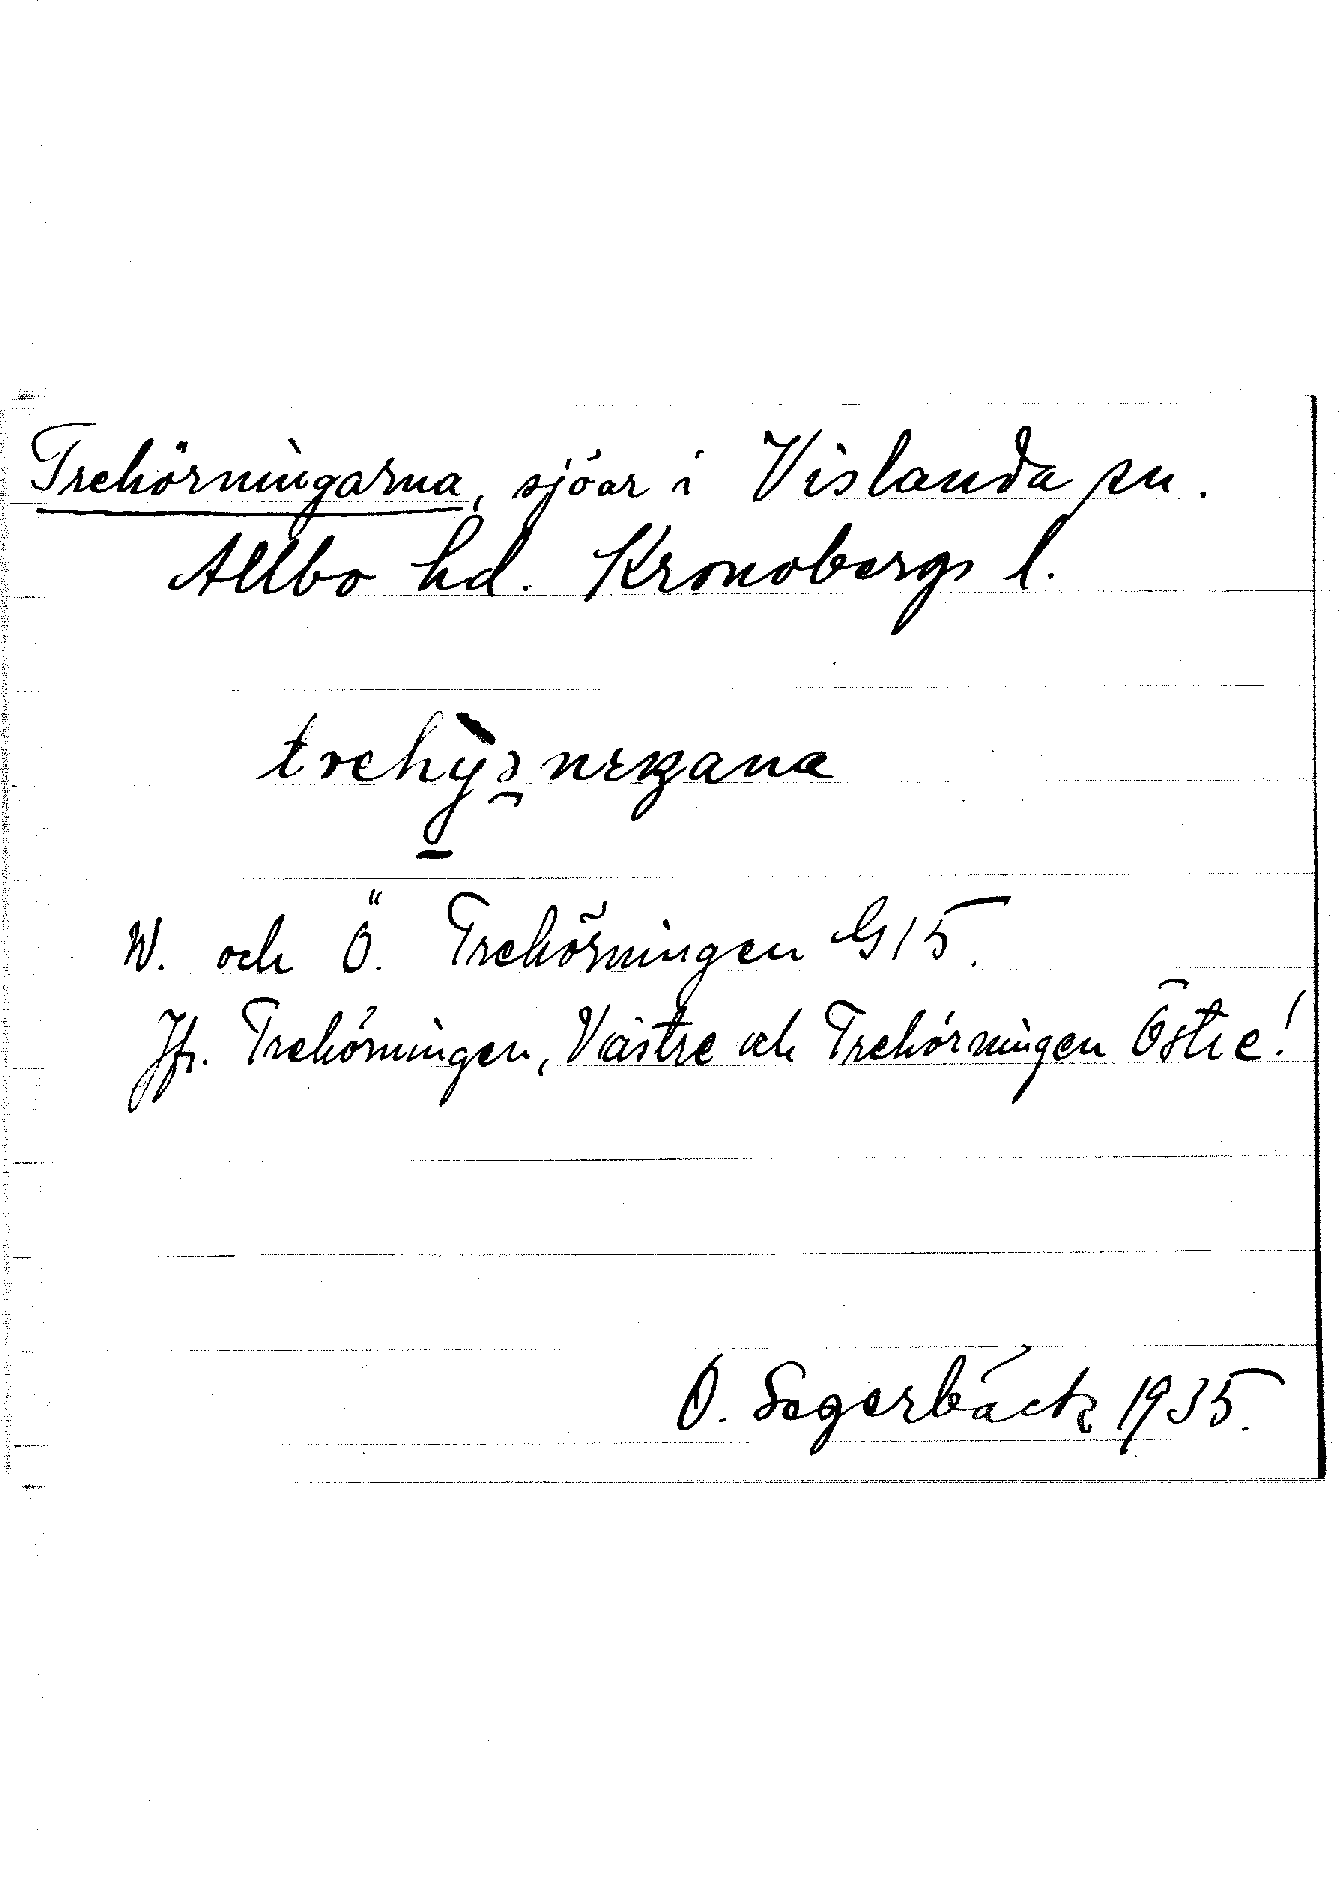 Trehörningarna, sjöar i Vislanda sn.
Allbo hd. Kronobergs l.
W. och Ö. Trehörningen G15.
Jfr. Trehörningen, Västre och Trehörningen Östre!
O. Segerbäck 1935.